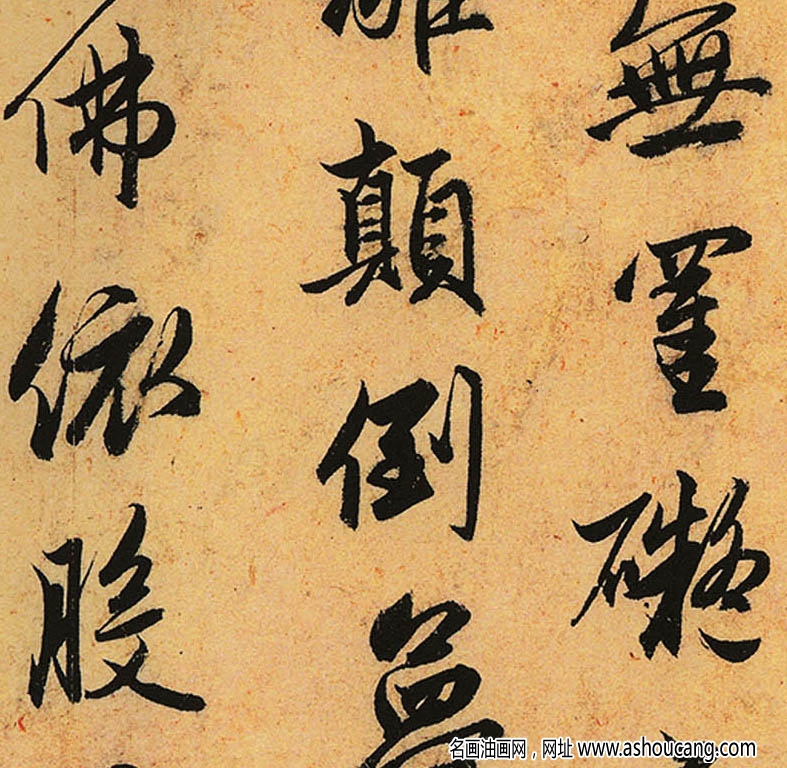 無罣礙
離顛倒
佛依般
名画油画网，网址 www.ashoucang.com